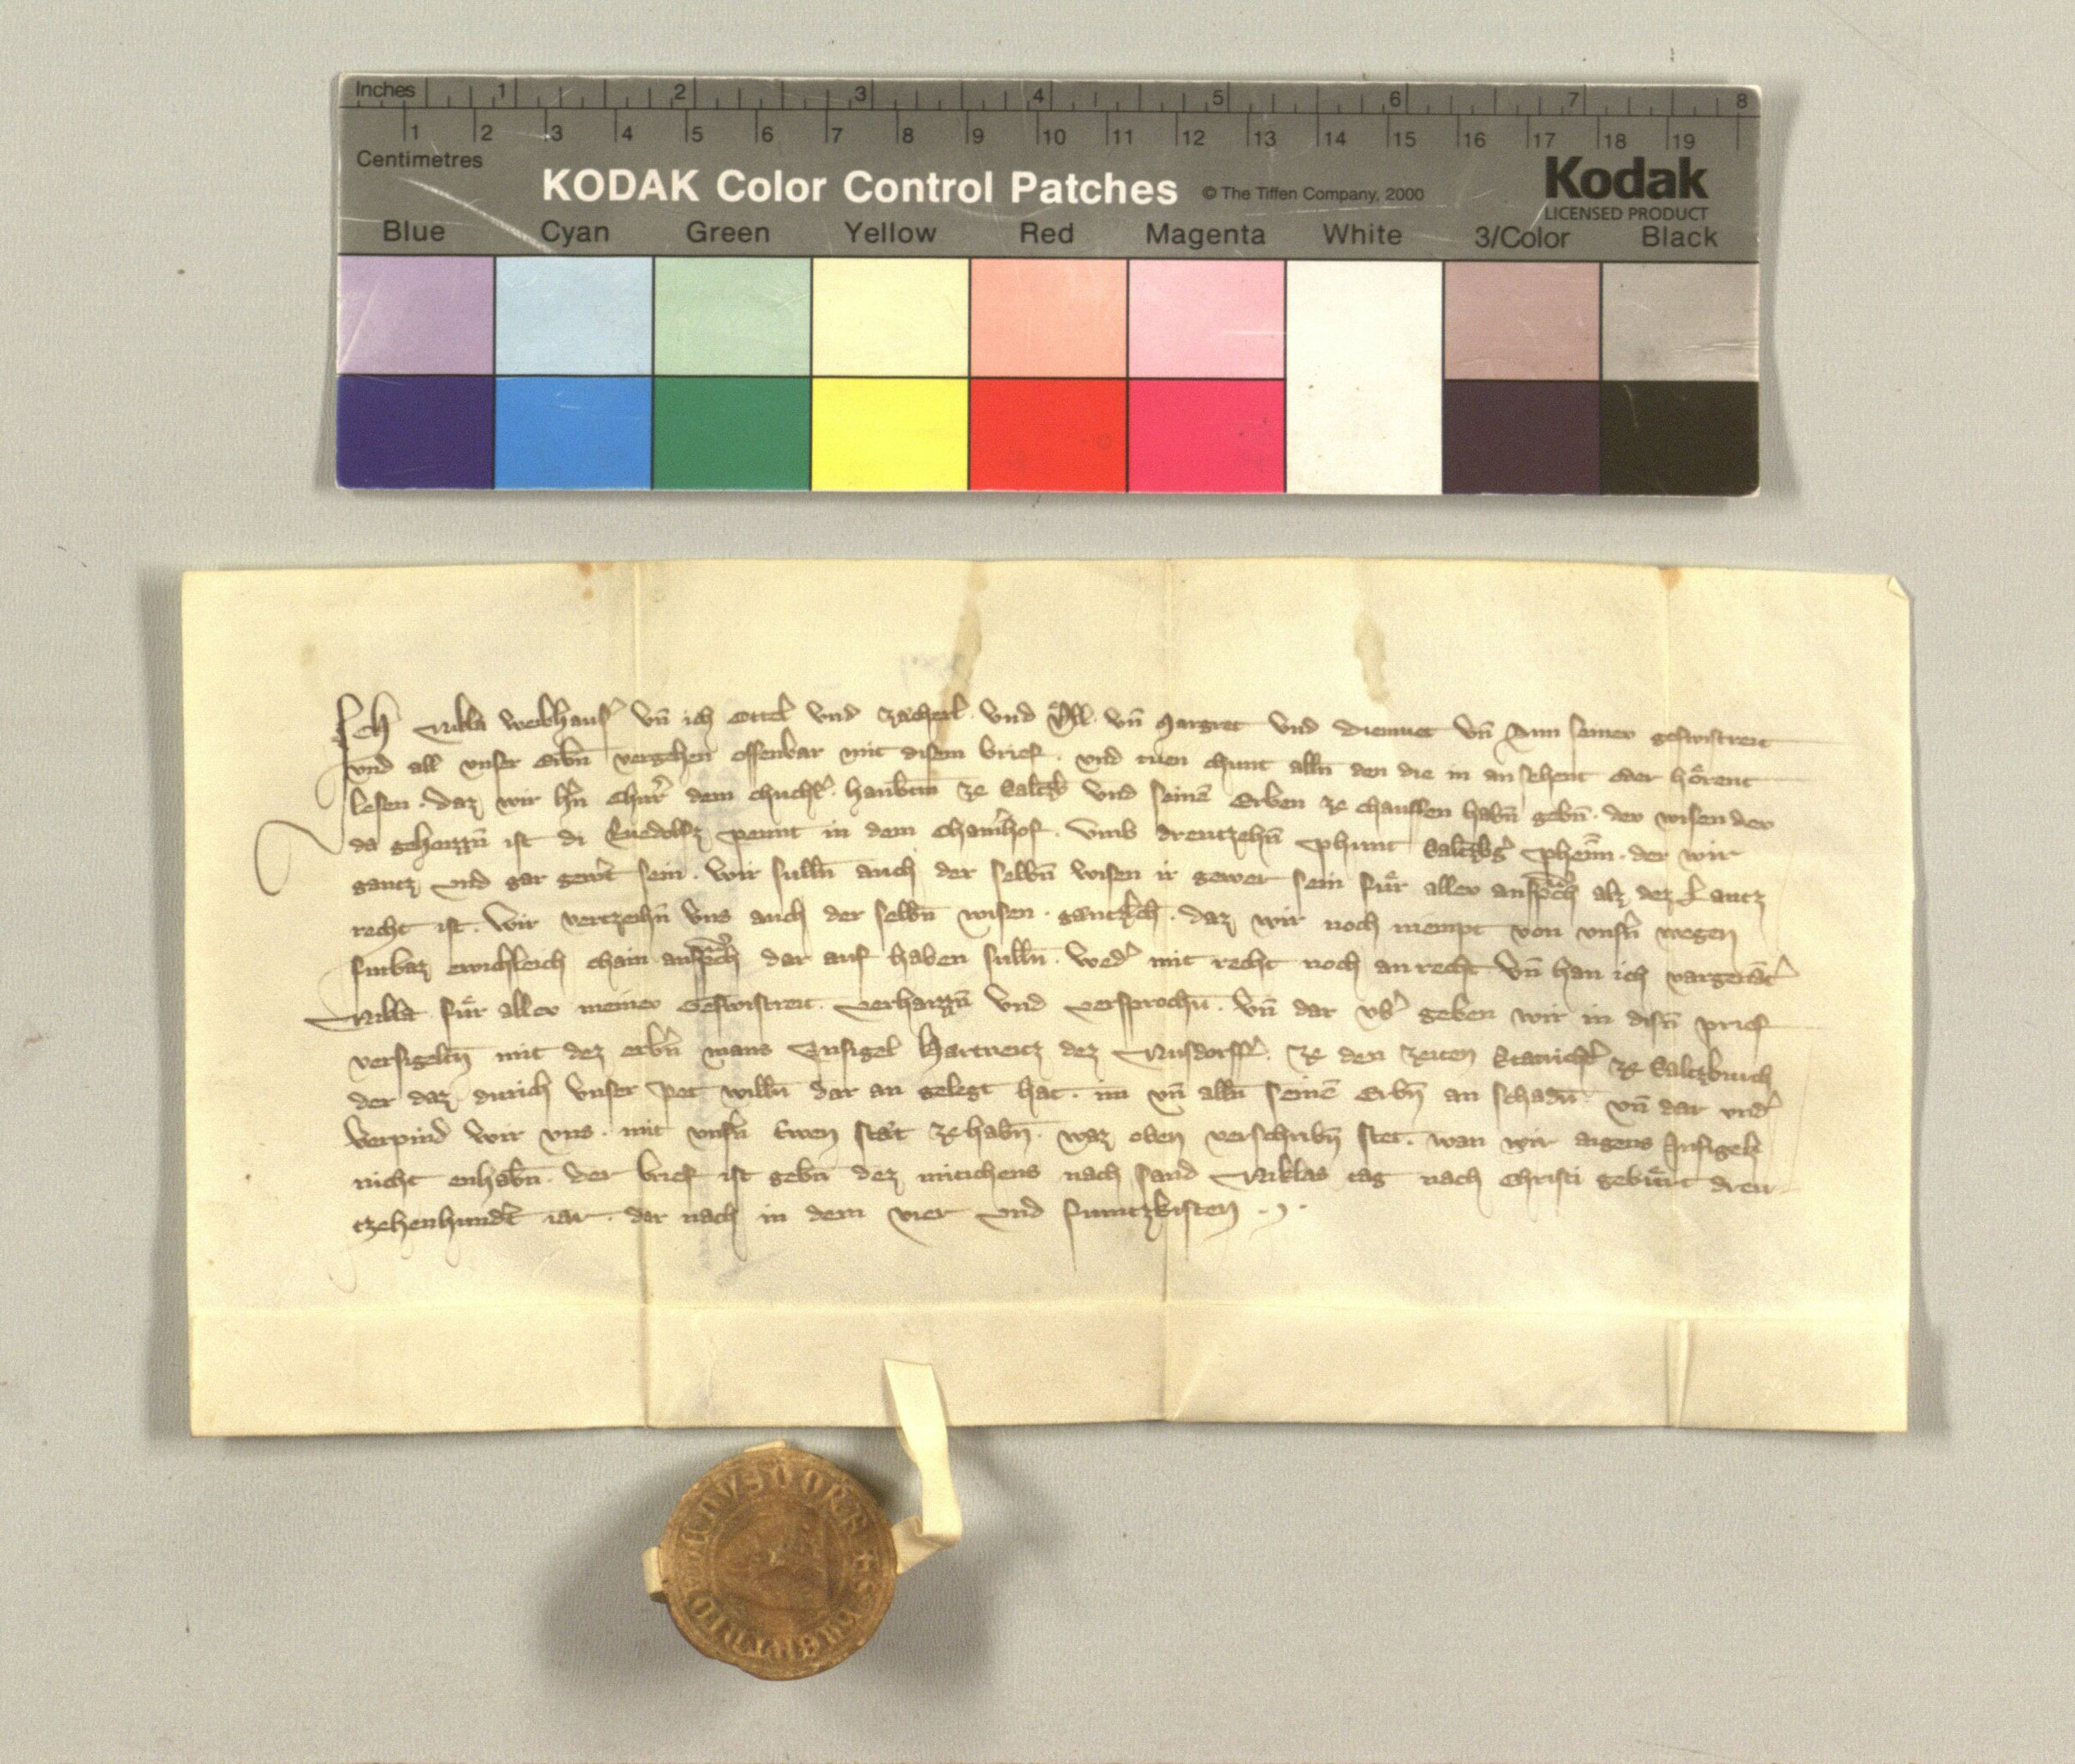 Inches 1 2 3 4 5 6 7 8
1 2 3 4 5 6 7 8 9 10 11 12 13 14 15 16 17 18 19
Centimetres
KODAK Color Control Patches © The Tiffen Company, 2000 Kodak
LICENSED PRODUCT
Blue Cyan Green Yellow Red Magenta White 3/Color Black
Ich Nikla vñ ich Ottel vnd Zächerl vnd vñ Margret vnd Diemuet vñ Ann seinew geswistreit
vnd all vnser Erbn̄ vergehen offenbar mit disem brief . vnd tuen chunt alln̄ den die in an sehent oder hoͤrent
lesen . daz wir dem ze Saltzb vnd seinē Erben ze chauffen habn̄ gebn̄ . der wisen der
da gehaizzn̄ ist di Ruedolfz pewnt in dem . vmb drewtzehn̄ phunt phenn̄ . der wir
gantz vnd gar gewert sein . wir sulln̄ auch der selbn̄ wisen ir gewer sein fuͤr allew ansprch alz dez Lantz
recht ist . Wir vertzeihn̄ vns auch der selbn̄ wisen . gantzlch . daz wir noch niempt von vnsn̄ wegen
furbaz ewichleich chain ansprch dar auf haben sulln̄ . wedˀ mit recht noch an recht vñ han ich vargenāt
Nikla fuͤr allew meinew Geswistreit . verhaizzn̄ vnd versprochn̄ . vñ dar vbˀ geben wir in disn̄ prief
versigeltn̄ mit dez erbn̄ mans Insigel Hartneitz dez Nusdorfˀ . ze den zeiten Statrichtˀ ze Saltzburch
der daz durich vnser pet willn̄ dar an gelegt hat . im vñ alln̄ seinē Erbn̄ an schadn̄ vñ dar vndˀ
verpind wir vns . mit vnsn̄ trwen stät ze habn̄ . waz oben verschribn̄ stet . wan wir aigens Insigels
nicht enhabn̄ . der brief ist gebn̄ dez mitichens nach sand Niklas tag nach Christi gebuͤrt drew
tzehenhundt iar . dar nach in dem vier vnd funftzkisten